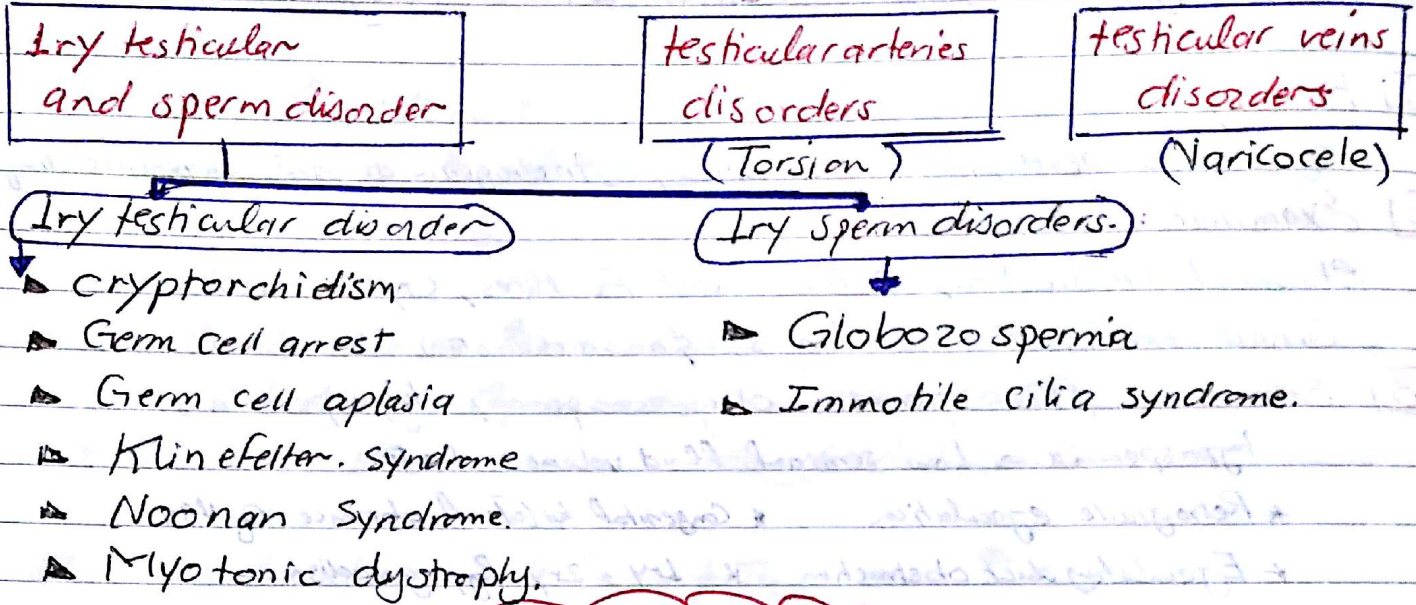 1ry testicular
and sperm disorder
testicular arteries
disorders
(Torsion)
testicular veins
disorders
(Varicocele)
1ry testicular disorder
cryptorchidism
Germ cell arrest
Germ cell aplasia
Klinefelter. syndrome
Noonan Syndrome.
Myotonic dystrophy.
1ry sperm disorders. :
Globozospermia
Immotile cilia syndrome.